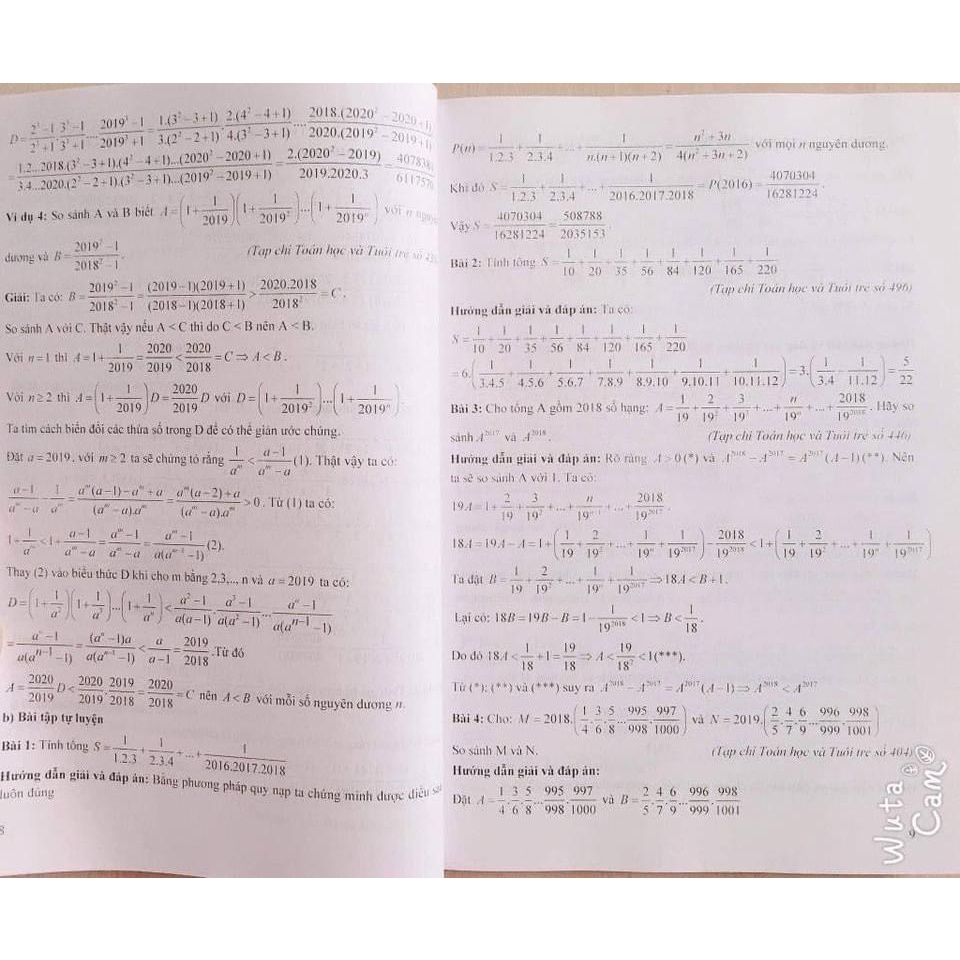 D = (2³ − 1)/(2³ + 1) · (3³ − 1)/(3³ + 1) ... (2019³ − 1)/(2019³ + 1) = 1.(3² − 3 + 1)/3.(2² − 2 + 1) · 2.(4² − 4 + 1)/4.(3² − 3 + 1) ... 2018.(2020² − 2020 + 1)/2020.(2019² − 2019 + 1)
= 1.2...2018.(3² − 3 + 1).(4² − 4 + 1)...(2020² − 2020 + 1)/3.4...2020.(2² − 2 + 1).(3² − 3 + 1)...(2019² − 2019 + 1) = 2.(2020² − 2019)/2019.2020.3 =
Ví dụ 4: So sánh A và B biết A = (1 + 1/2019)(1 + 1/2019²)...(1 + 1/2019ⁿ) với n
dương và B = (2019² − 1)/(2018² − 1). (Tạp chí Toán học và Tuổi trẻ số
Giải: Ta có: B = (2019² − 1)/(2018² − 1) = (2019 − 1)(2019 + 1)/(2018 − 1)(2018 + 1) > 2020.2018/2018² = C.
So sánh A với C. Thật vậy nếu A < C thì do C < B nên A < B.
Với n = 1 thì A = 1 + 1/2019 = 2020/2019 < 2020/2018 = C ⇒ A < B.
Với n ≥ 2 thì A = (1 + 1/2019)D = 2020/2019 D với D = (1 + 1/2019²)...(1 + 1/2019ⁿ).
Ta tìm cách biến đổi các thừa số trong D để có thể giản ước chúng.
Đặt a = 2019, với m ≥ 2 ta sẽ chứng tỏ rằng 1/aᵐ < (a − 1)/(aᵐ − a) (1). Thật vậy ta có:
(a − 1)/(aᵐ − a) − 1/aᵐ = (aᵐ(a − 1) − aᵐ + a)/((aᵐ − a).aᵐ) = (aᵐ(a − 2) + a)/((aᵐ − a).aᵐ) > 0. Từ (1) ta có:
1 + 1/aᵐ < 1 + (a − 1)/(aᵐ − a) = (aᵐ − 1)/(aᵐ − a) = (aᵐ − 1)/(a(aᵐ⁻¹ − 1)) (2).
Thay (2) vào biểu thức D khi cho m bằng 2,3,..., n và a = 2019 ta có:
D = (1 + 1/a²)(1 + 1/a³)...(1 + 1/aⁿ) < (a² − 1)/(a(a − 1)) · (a³ − 1)/(a(a² − 1)) ... (aⁿ − 1)/(a(aⁿ⁻¹ − 1))
= (aⁿ − 1)/(a(aⁿ⁻¹ − 1)) = (aⁿ − 1)a/(a(aⁿ⁻¹ − 1)) < a/(a − 1) = 2019/2018. Từ đó
A = 2020/2019 D < 2020/2019 · 2019/2018 = 2020/2018 = C nên A < B với mỗi số nguyên dương n.
b) Bài tập tự luyện
Bài 1: Tính tổng S = 1/1.2.3 + 1/2.3.4 + ... + 1/2016.2017.2018
Hướng dẫn giải và đáp án: Bằng phương pháp quy nạp ta chứng minh được điều sau
luôn đúng
8
P(n) = 1/1.2.3 + 1/2.3.4 + ... + 1/n.(n + 1)(n + 2) = (n² + 3n)/4(n² + 3n + 2) với mọi n nguyên dương.
Khi đó S = 1/1.2.3 + 1/2.3.4 + ... + 1/2016.2017.2018 = P(2016) = 4070304/16281224.
Vậy S = 4070304/16281224 = 508788/2035153.
Bài 2: Tính tổng S = 1/10 + 1/20 + 1/35 + 1/56 + 1/84 + 1/120 + 1/165 + 1/220
(Tạp chí Toán học và Tuổi trẻ số 496)
Hướng dẫn giải và đáp án: Ta có:
S = 1/10 + 1/20 + 1/35 + 1/56 + 1/84 + 1/120 + 1/165 + 1/220
= 6.(1/3.4.5 + 1/4.5.6 + 1/5.6.7 + 1/7.8.9 + 1/8.9.10 + 1/9.10.11 + 1/10.11.12) = 3.(1/3.4 − 1/11.12) = 5/22
Bài 3: Cho tổng A gồm 2018 số hạng: A = 1/19 + 2/19² + 3/19³ + ... + n/19ⁿ + ... + 2018/19²⁰¹⁸. Hãy so
sánh A²⁰¹⁷ và A²⁰¹⁸. (Tạp chí Toán học và Tuổi trẻ số 446)
Hướng dẫn giải và đáp án: Rõ ràng A > 0 (*) và A²⁰¹⁸ − A²⁰¹⁷ = A²⁰¹⁷(A − 1) (**). Nên
ta sẽ so sánh A với 1. Ta có:
19A = 1 + 2/19 + 3/19² + ... + n/19ⁿ⁻¹ + ... + 2018/19²⁰¹⁷.
18A = 19A − A = 1 + (1/19 + 2/19² + ... + 1/19ⁿ + 1/19²⁰¹⁷) − 2018/19²⁰¹⁸ < 1 + (1/19 + 2/19² + ... + 1/19ⁿ + 1/19²⁰¹⁷)
Ta đặt B = 1/19 + 2/19² + ... + 1/19ⁿ + 1/19²⁰¹⁷ ⇒ 18A < B + 1.
Lại có: 18B = 19B − B = 1 − 1/19²⁰¹⁸ < 1 ⇒ B < 1/18.
Do đó 18A < 1/18 + 1 = 19/18 ⇒ A < 19/18² < 1(***).
Từ (*); (**) và (***) suy ra A²⁰¹⁸ − A²⁰¹⁷ = A²⁰¹⁷(A − 1) ⇒ A²⁰¹⁸ < A²⁰¹⁷
Bài 4: Cho: M = 2018.(1/4 · 3/6 · 5/8 ... 995/998 · 997/1000) và N = 2019.(2/5 · 4/7 · 6/9 ... 996/999 · 998/1001)
So sánh M và N. (Tạp chí Toán học và Tuổi trẻ số 404)
Hướng dẫn giải và đáp án:
Đặt A = 1/4 · 3/6 · 5/8 ... 995/998 · 997/1000 và B = 2/5 · 4/7 · 6/9 ... 996/999 · 998/1001
9
Wuta Cam